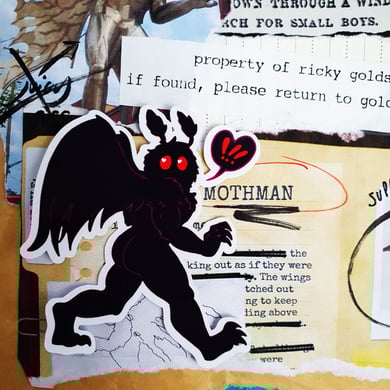 OWN THROUGH A WIND
RCH FOR SMALL BOYS.
property of ricky golds
if found, please return to gold
!!!
MOTHMAN
the
king out as if they were
The wings
tched out
ng to keep
ding above
were